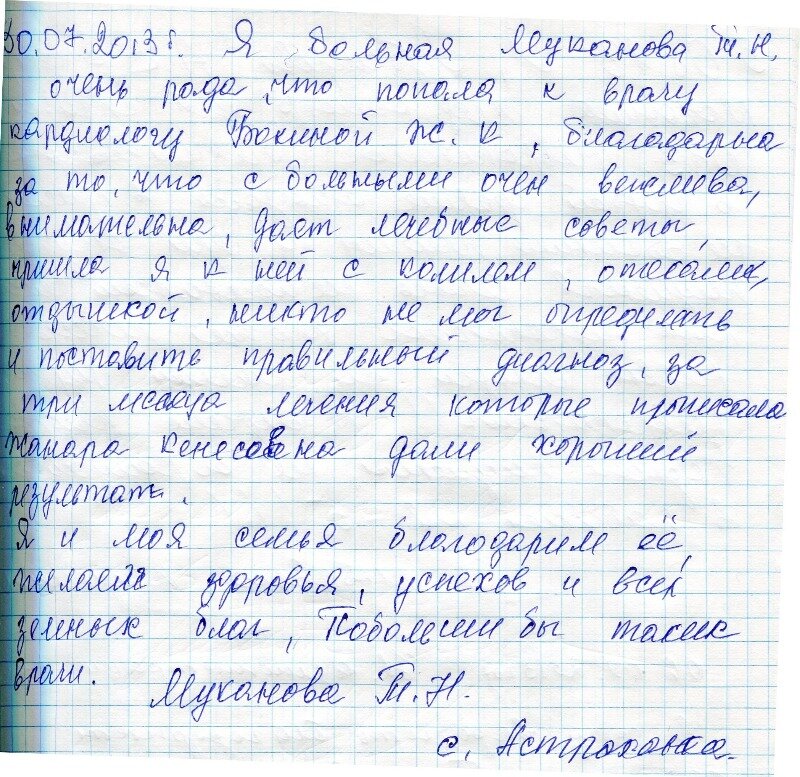 30.07.2013г. Я больная Муканова Т.Н.
очень рада, что попала к врачу
кардиологу Бокиной Ж. К, благодарна
за то, что с больными очен вежлева,
внимательна, дает лечебные советы,
пришла я к ней с кашлем, отеками,
отдышкой, никто не мог определить
и поставить правильный диагноз, за
три месяца лечения которые прописала
Жанара Кенесовна дали хороший
результать.
Я и моя семья благодарим её,
желаем здоровья, успехов и всех
земных благ, Побольши бы таких
врачи.
Муканова Т.Н.
с. Астраханка.